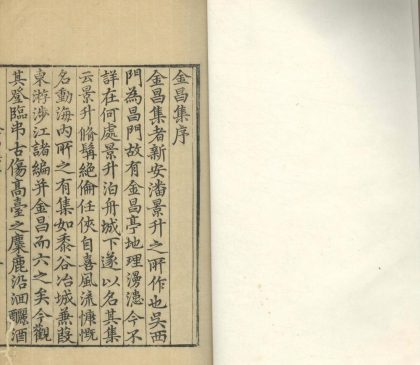 金昌集序
金昌集者新安潘景升之所作也吳西
門為昌門故有金昌亭地理湮漶今不
詳在何處景升泊舟城下遂以名其集
云景升脩髯絕倫任俠自喜風流慷慨
名動海內所之有集如黍谷冶城蒹葭
東游涉江諸編并金昌而六之矣今觀
其登臨弔古傷高臺之麋鹿沿洄釃酒